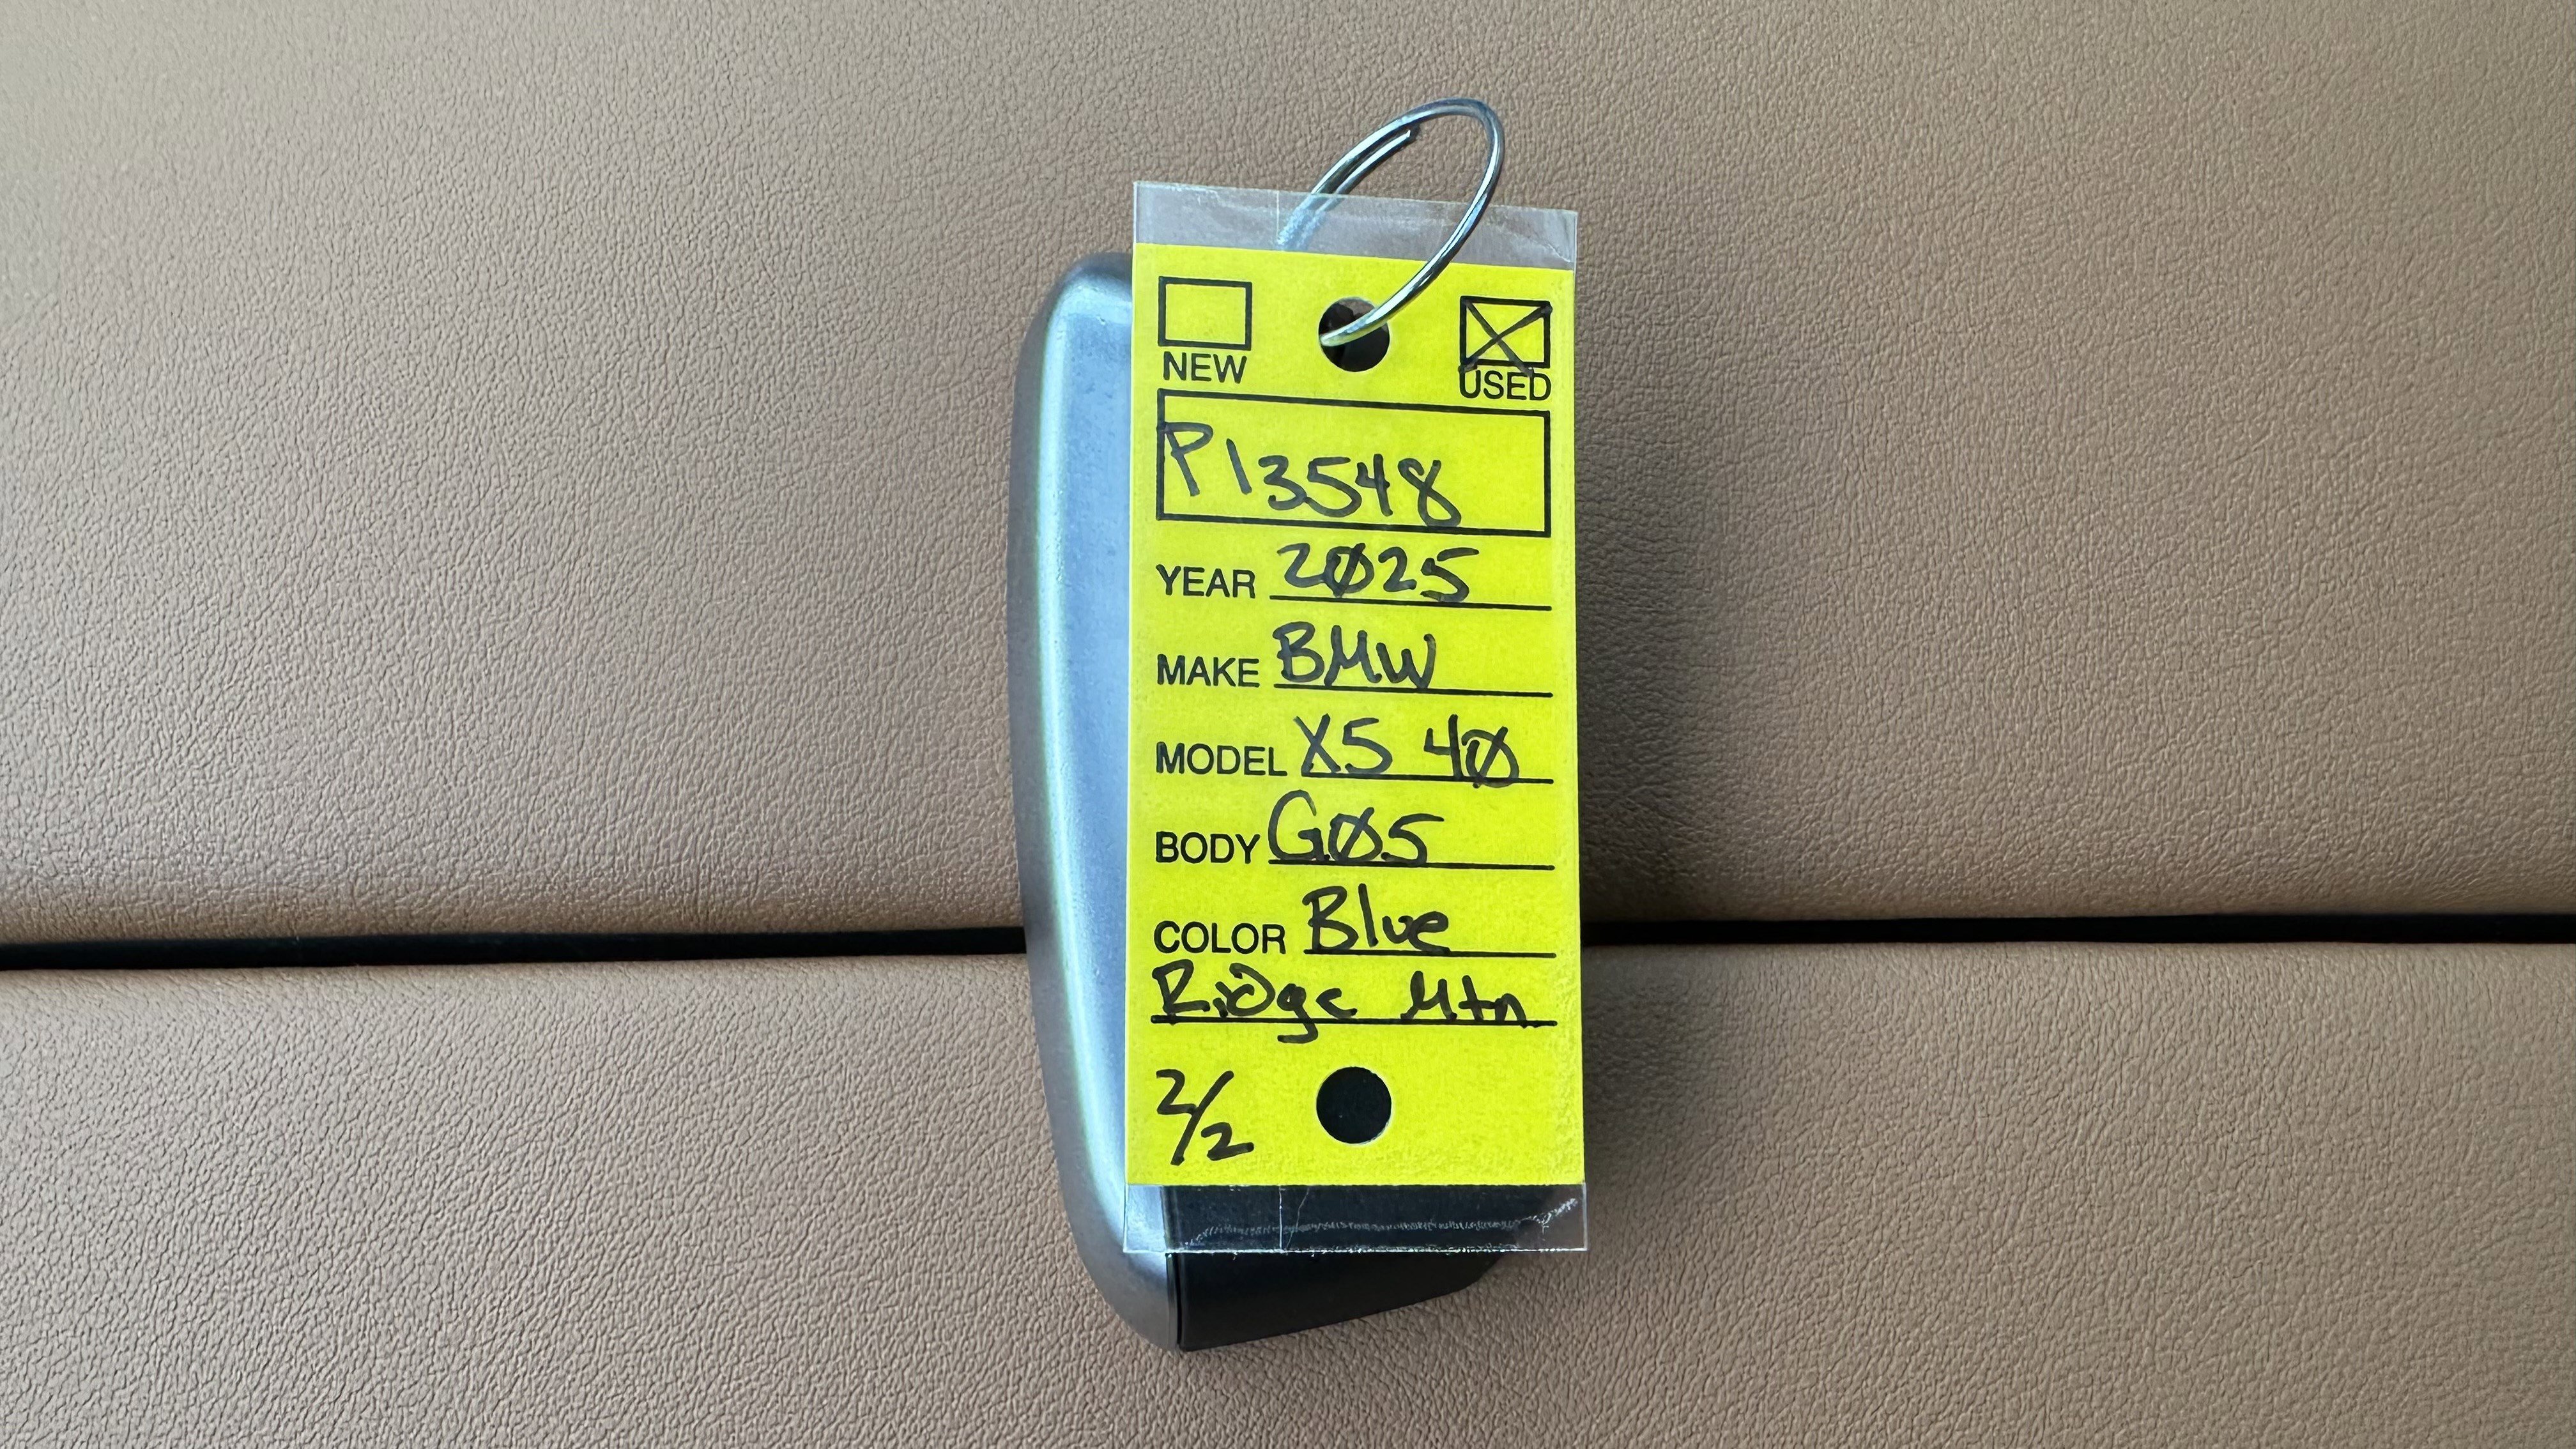 NEW USED
P13548
YEAR 2025
MAKE BMW
MODEL X5 40
BODY G05
COLOR Blue
Ridge Mtn
2/2